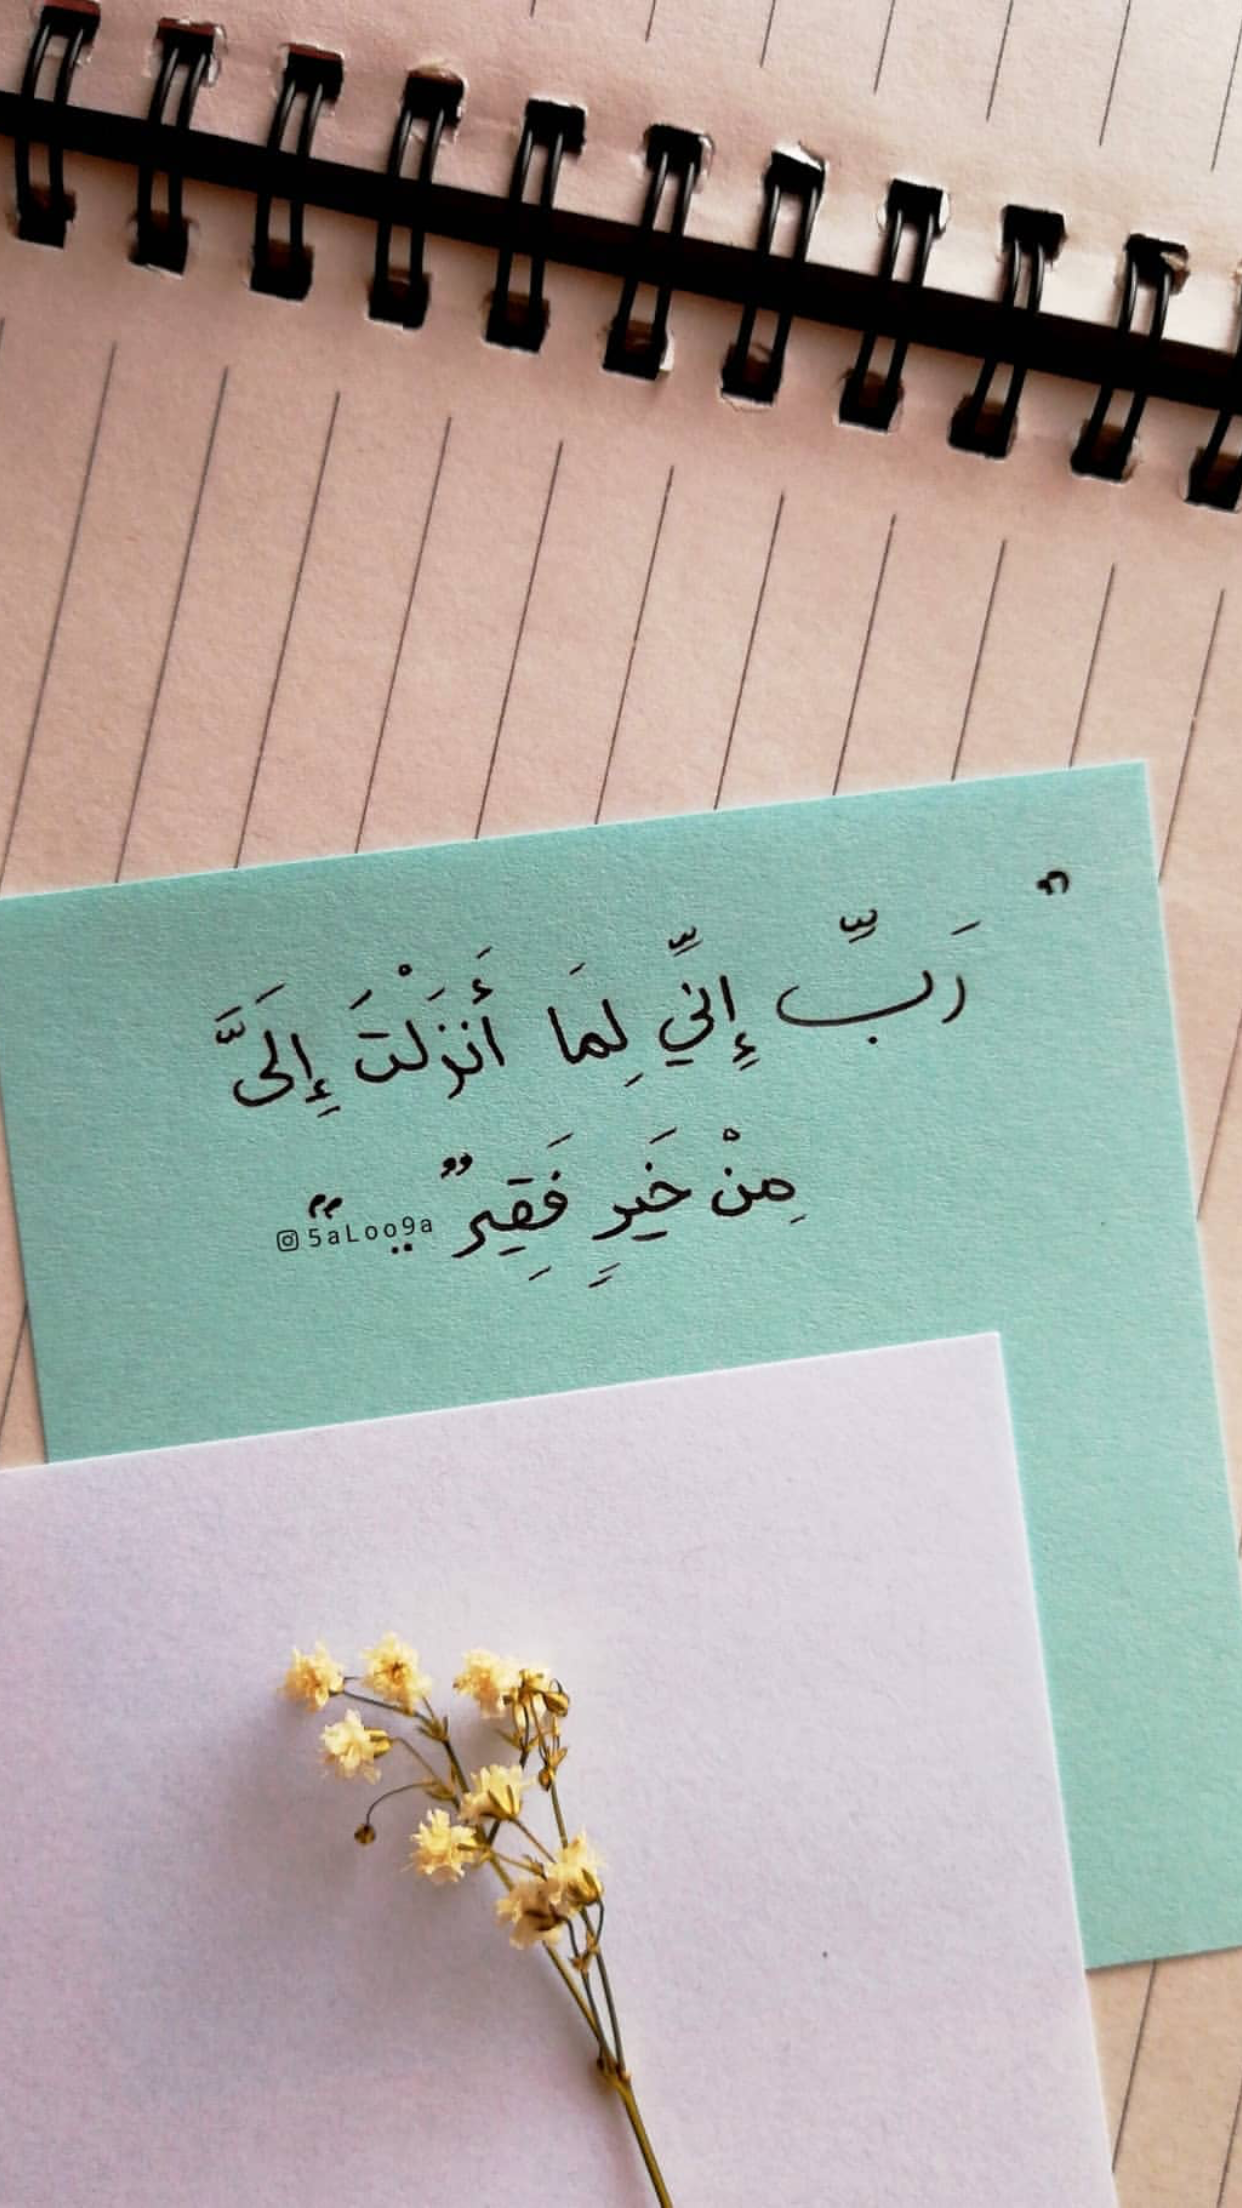 " رَبِّ إِنِّي لِمَا أَنزَلْتَ إِلَيَّ
مِنْ خَيرٍ فَقِيرٌ .. "
5aLoo9a